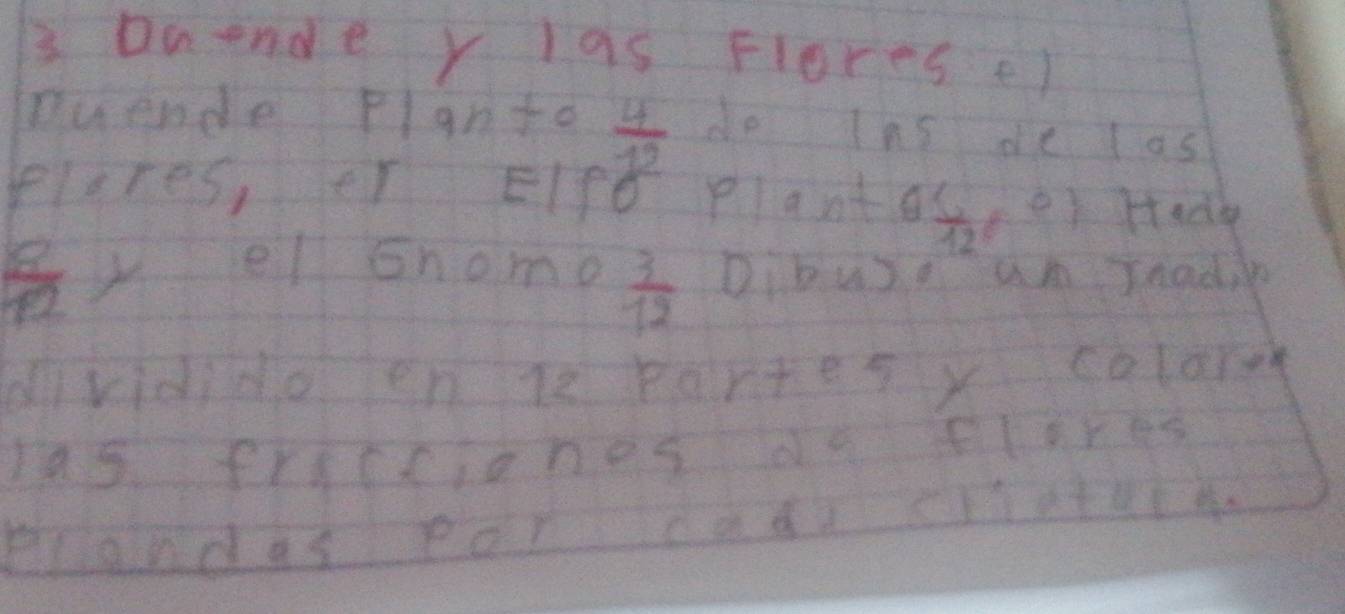 3 Duende y las Flores el
Duende Planto 4/12 de las de las
flores, el Elfo Planto /12, el Hada
/12 y el Gnomo 3/12 Dibujo un Jnadin
dividido en 12 Partes y colorea
las fracciones de flores
Plandas Por cada criatura.